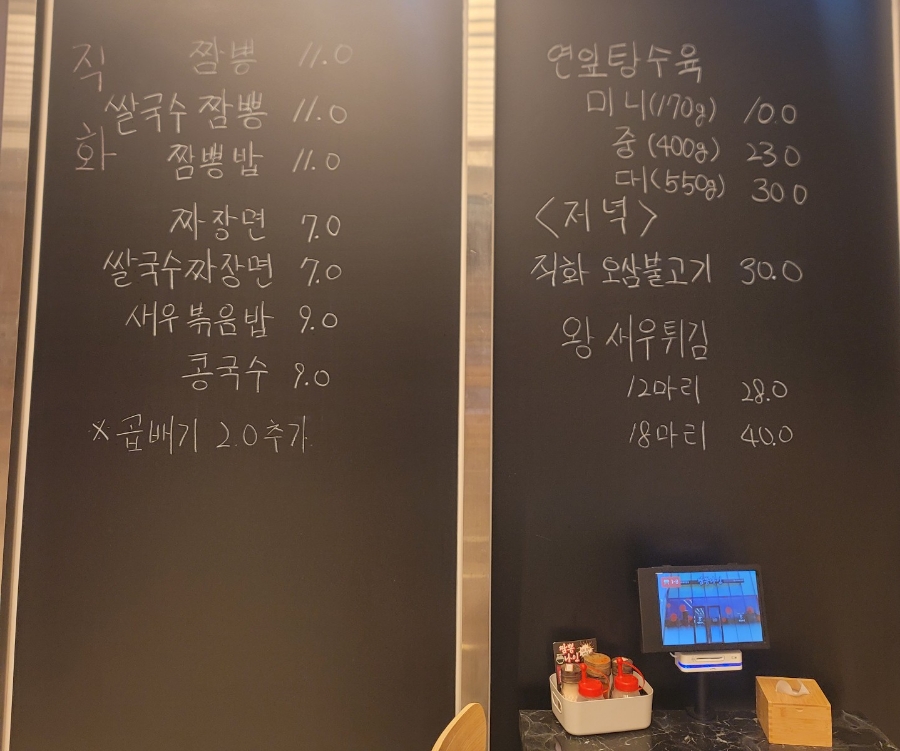 직화
짬뽕 11.0
쌀국수 짬뽕 11.0
짬뽕밥 11.0
짜장면 7.0
쌀국수짜장면 7.0
새우볶음밥 9.0
콩국수 9.0
※곱배기 2.0추가
연잎탕수육
미니(170g) 10.0
중(400g) 23.0
대(550g) 30.0
<저녁>
직화 오삼불고기 30.0
왕새우튀김
12마리 28.0
18마리 40.0